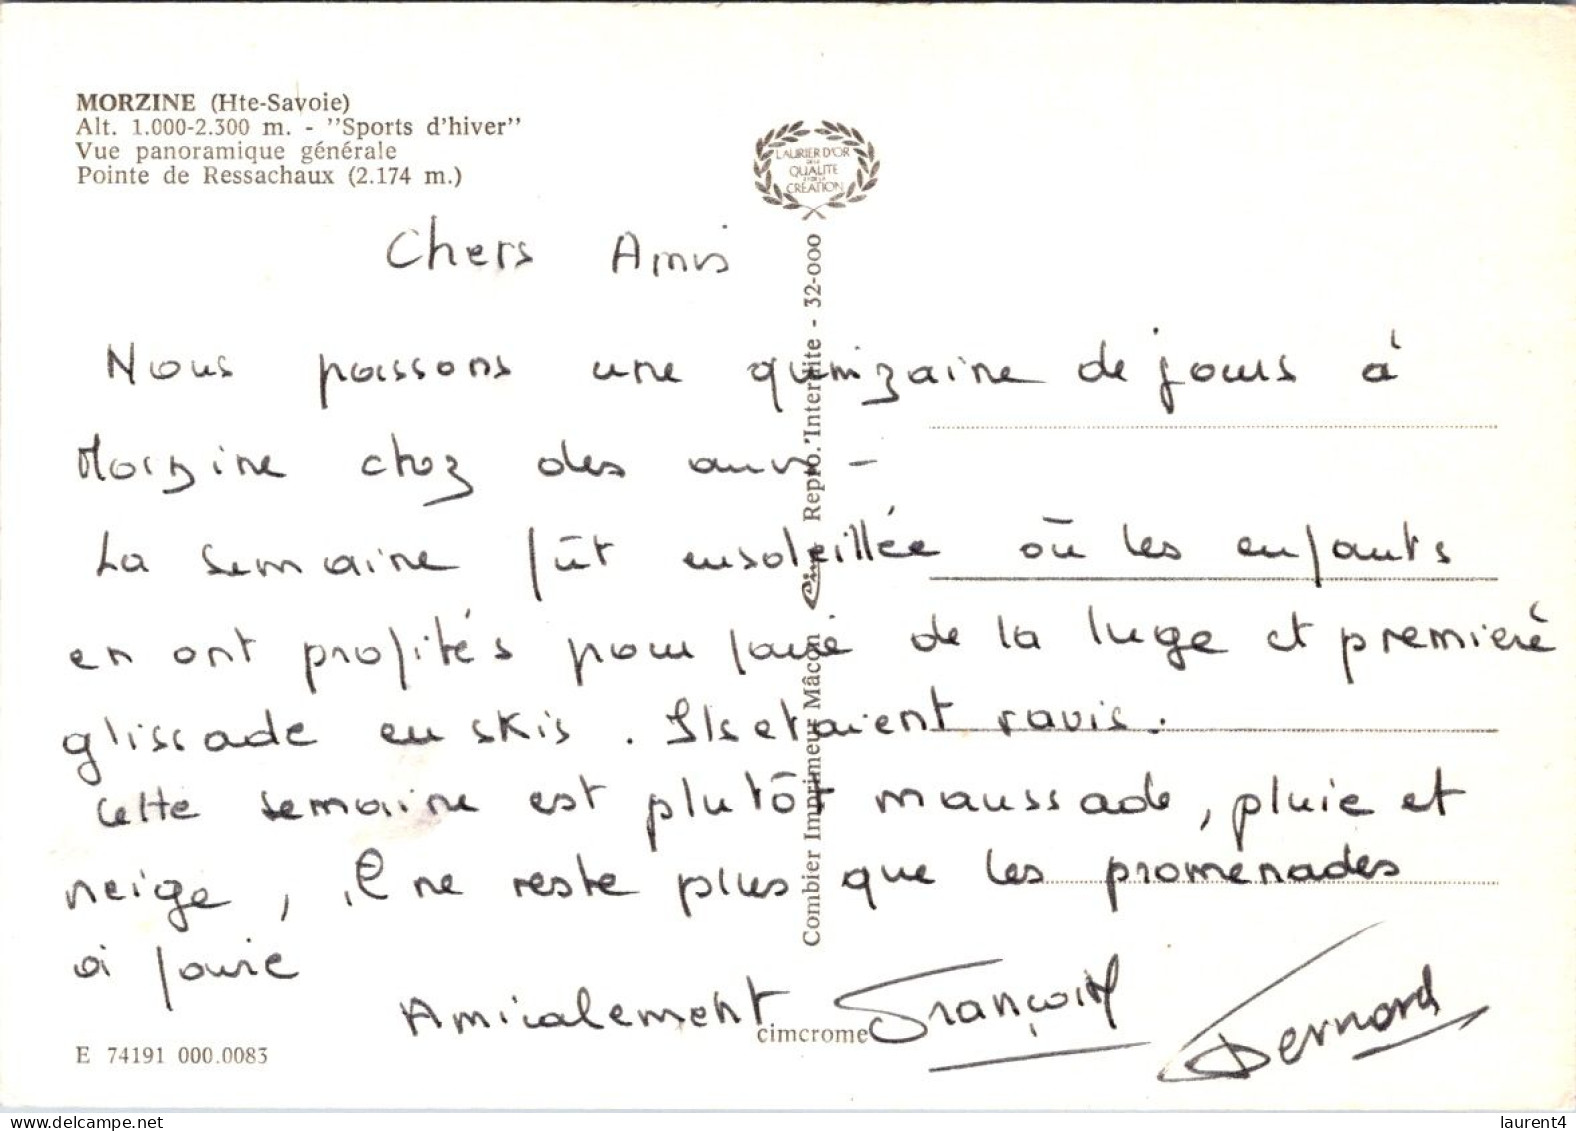 MORZINE (Hte-Savoie)
Alt. 1.000-2.300 m. - "Sports d'hiver"
Vue panoramique générale
Pointe de Ressachaux (2.174 m.)
LAURIER D'OR
DE LA
QUALITE
CREATION
Chers Amis
Nous passons une quinzaine de jours à
Morzine chez des amis -
La semaine fût ensoleillée où les enfants
en ont profités pour faire de la luge et premiere
glissade en skis. Ils etaient ravis.
Cette semaine est plutôt maussade, pluie et
neige, il ne reste plus que les promenades
à faire
Amicalement Françoise Bernard
Combier Imprimeur Mâcon Cim Repro. Interdite - 32-000
cimcrome
E 74191 000.0083
laurent4